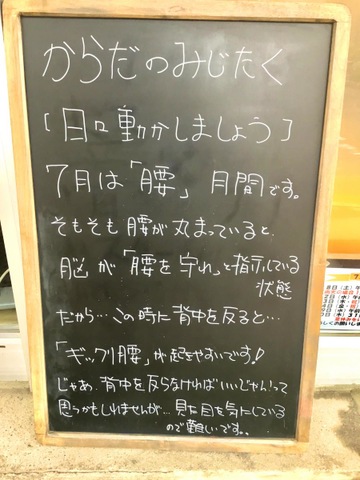 からだのみじたく
［日々動かしましょう］
7月は「腰」月間です。
そもそも腰が丸まっていると、
脳が「腰を守れ」と指示している
状態
だから…この時に背中を反ると…
「ギックリ腰」が起きやすいです!
じゃあ、背中を反らなければいいじゃん!って
思うかもしれませんが…見た目を気にしている
ので難しいです。。